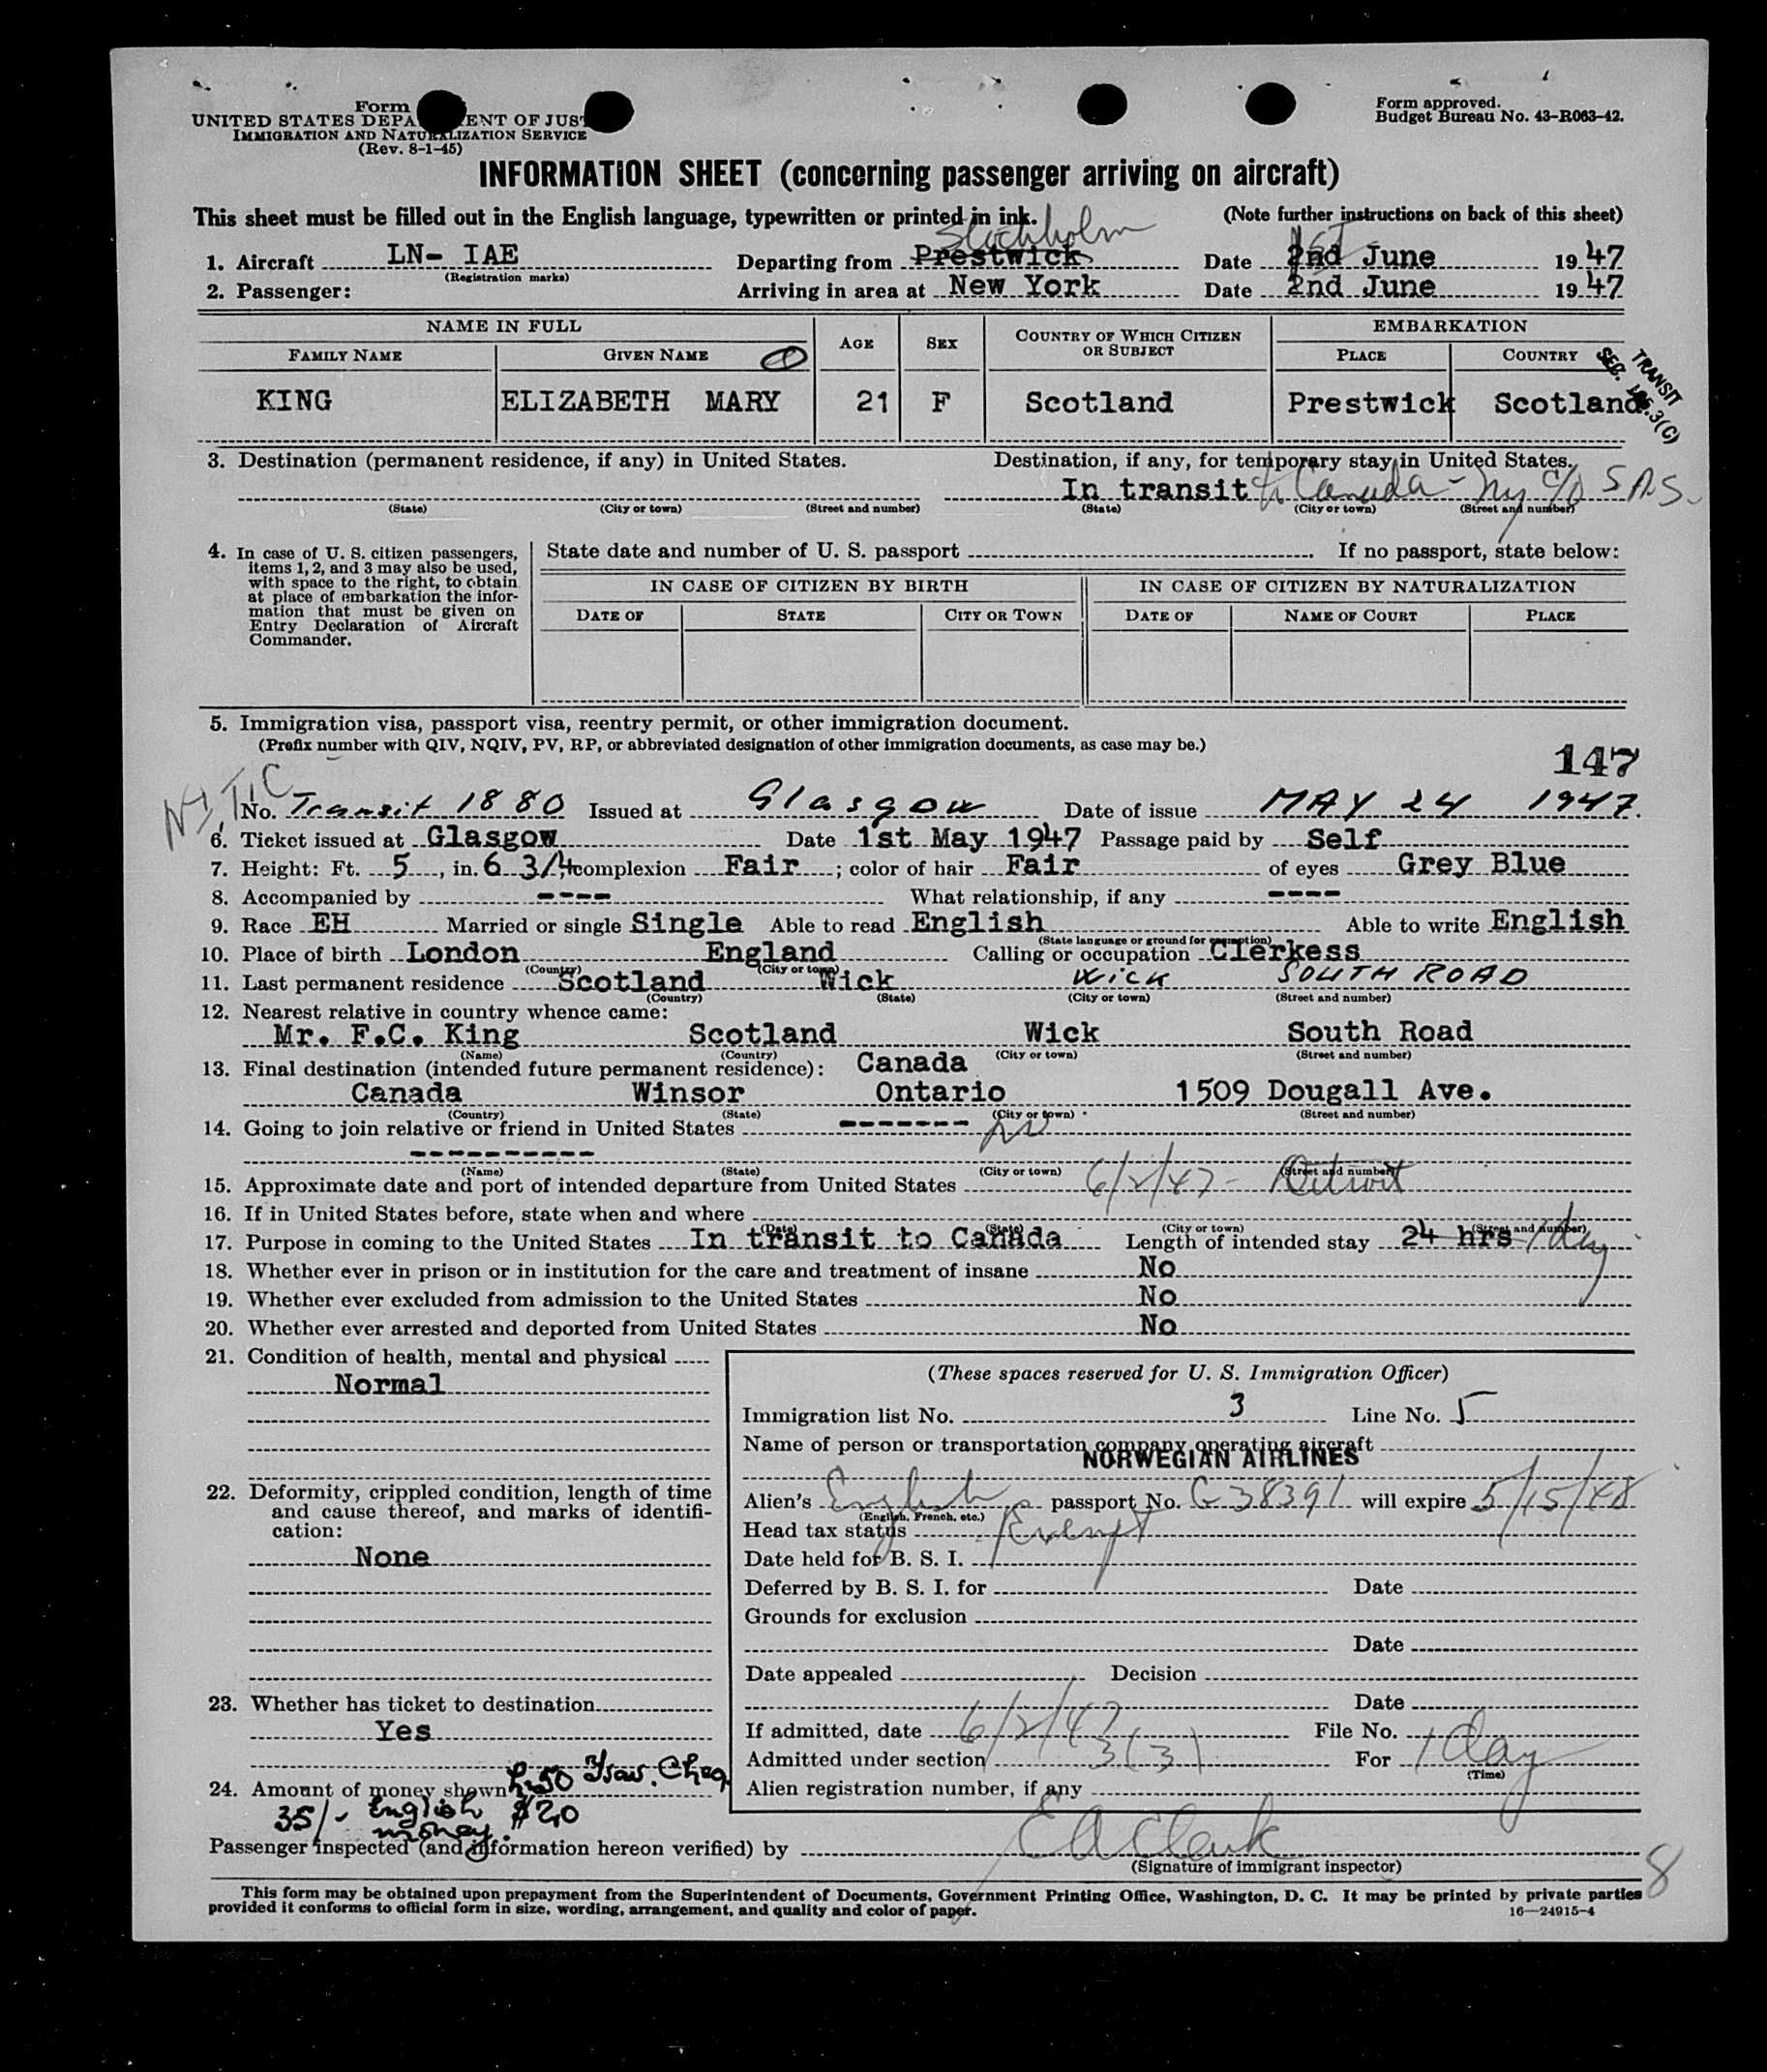 Form
UNITED STATES DEPA ENT OF JUST
IMMIGRATION AND NATURALIZATION SERVICE
(Rev. 8-1-45)
Form approved.
Budget Bureau No. 43-R063-42.
INFORMATION SHEET (concerning passenger arriving on aircraft)
This sheet must be filled out in the English language, typewritten or printed in ink. (Note further instructions on back of this sheet)
Stockholm 1st
1. Aircraft LN- IAE Departing from Prestwick Date 2nd June 1947
(Registration marks)
2. Passenger: Arriving in area at New York Date 2nd June 1947
NAME IN FULL AGE SEX COUNTRY OF WHICH CITIZEN OR SUBJECT EMBARKATION
FAMILY NAME GIVEN NAME PLACE COUNTRY
TRANSIT
SEC. 3(C)
KING ELIZABETH MARY 21 F Scotland Prestwick Scotland
3. Destination (permanent residence, if any) in United States. Destination, if any, for temporary stay in United States.
In transit to Canada - NY c/o SAS
(State) (City or town) (Street and number) (State) (City or town) (Street and number)
4. In case of U. S. citizen passengers, items 1, 2, and 3 may also be used, with space to the right, to obtain at place of embarkation the information that must be given on Entry Declaration of Aircraft Commander.
State date and number of U. S. passport If no passport, state below:
IN CASE OF CITIZEN BY BIRTH IN CASE OF CITIZEN BY NATURALIZATION
DATE OF STATE CITY OR TOWN DATE OF NAME OF COURT PLACE
5. Immigration visa, passport visa, reentry permit, or other immigration document.
(Prefix number with QIV, NQIV, PV, RP, or abbreviated designation of other immigration documents, as case may be.)
147
No. Transit 1880 Issued at Glasgow Date of issue MAY 24 1947.
6. Ticket issued at Glasgow Date 1st May 1947 Passage paid by Self
7. Height: Ft. 5, in. 6 3/4; complexion Fair; color of hair Fair of eyes Grey Blue
8. Accompanied by ---- What relationship, if any ----
9. Race EH Married or single Single Able to read English Able to write English
(State language or ground for exemption)
10. Place of birth London England Calling or occupation Clerkess
(Country) (City or town)
11. Last permanent residence Scotland Wick WICK SOUTH ROAD
(Country) (State) (City or town) (Street and number)
12. Nearest relative in country whence came:
Mr. F.C. King Scotland Wick South Road
(Name) (Country) (City or town) (Street and number)
13. Final destination (intended future permanent residence): Canada
Canada Winsor Ontario 1509 Dougall Ave.
(Country) (State) (City or town) (Street and number)
14. Going to join relative or friend in United States -------
----------
(Name) (State) (City or town) (Street and number)
15. Approximate date and port of intended departure from United States 6/2/47 - Detroit
16. If in United States before, state when and where
(Date) (State) (City or town) (Street and number)
17. Purpose in coming to the United States In transit to Canada Length of intended stay 24 hrs 1 day
18. Whether ever in prison or in institution for the care and treatment of insane No
19. Whether ever excluded from admission to the United States No
20. Whether ever arrested and deported from United States No
21. Condition of health, mental and physical
Normal
22. Deformity, crippled condition, length of time and cause thereof, and marks of identification:
None
23. Whether has ticket to destination
Yes
24. Amount of money shown £50 Trav. Cheq.
35/- English money. $20
(These spaces reserved for U. S. Immigration Officer)
Immigration list No. 3 Line No. 5
Name of person or transportation company operating aircraft
NORWEGIAN AIRLINES
Alien's English passport No. C 38391 will expire 5/15/48
(English, French, etc.)
Head tax status Exempt
Date held for B. S. I.
Deferred by B. S. I. for Date
Grounds for exclusion
Date
Date appealed Decision
Date
If admitted, date 6/2/47 File No.
Admitted under section 3(3) For 1 day
(Time)
Alien registration number, if any
Passenger inspected (and information hereon verified) by E A Clark
(Signature of immigrant inspector)
8
This form may be obtained upon prepayment from the Superintendent of Documents, Government Printing Office, Washington, D. C. It may be printed by private parties
provided it conforms to official form in size, wording, arrangement, and quality and color of paper. 16—24915-4